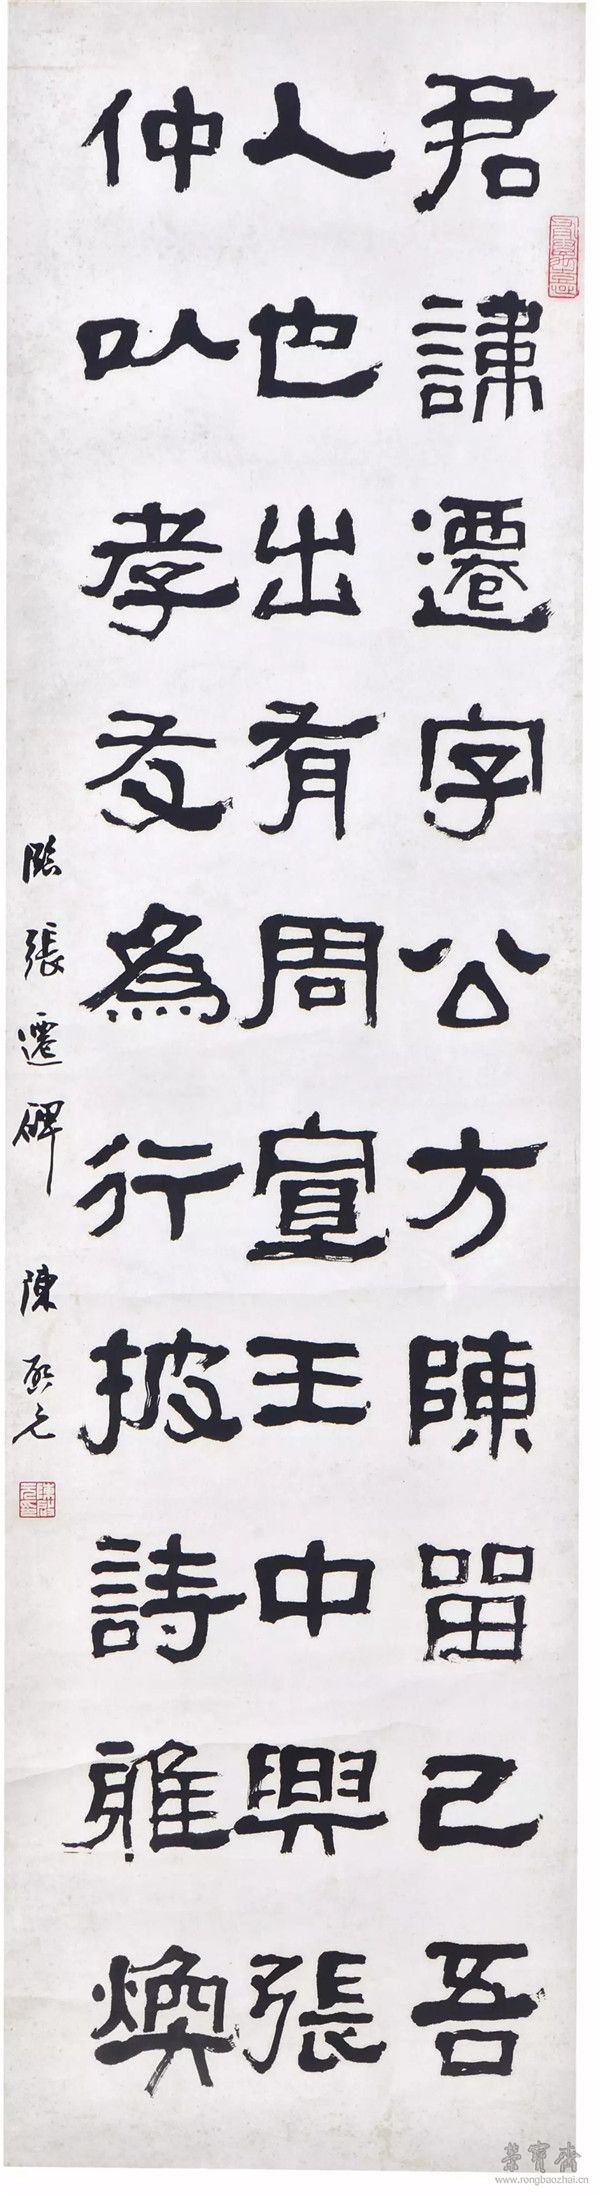 君諱遷字公方陳留己吾
人也出有周宣王中興張
仲以孝友為行披詩雅煥
臨張遷碑 陳啟元
榮寶齋
www.rongbaozhai.cn